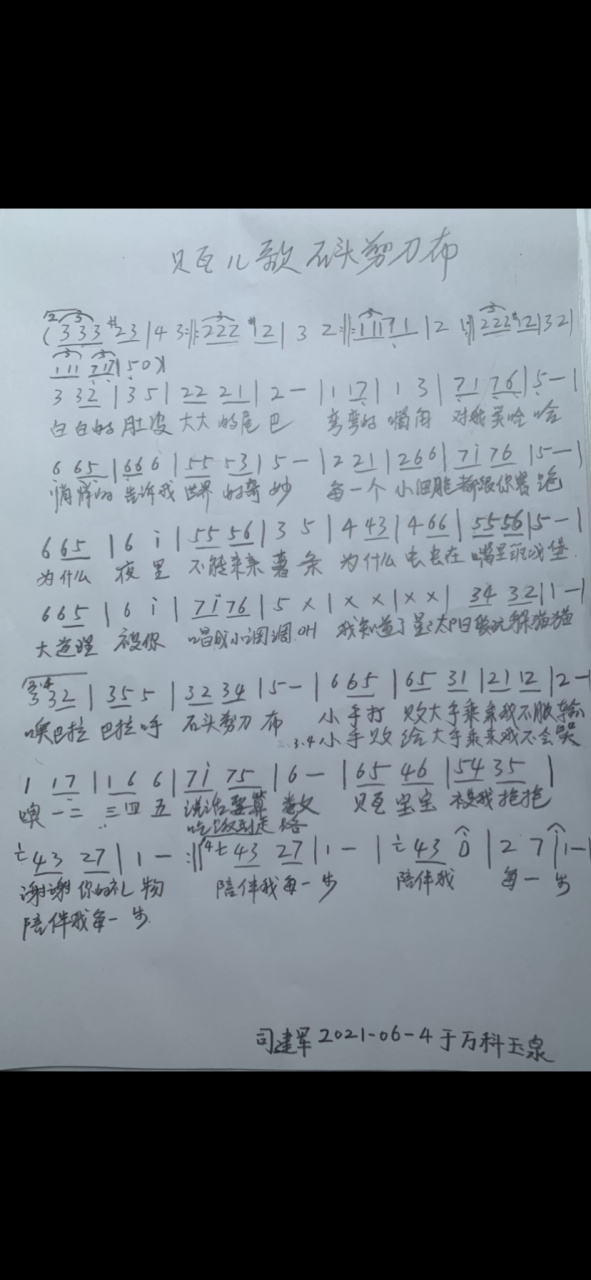 贝瓦儿歌 石头剪刀布
(333 #23|43:‖:222 #12|32:‖:11171|21:‖222 #12|32|
111 717|50)
3 32|35|22 21|2-|1 17|13|71 76|5-|
白白的 肚皮 大大的尾巴 弯弯的 嘴角 对我笑哈哈
6 65|66 6|55 53|5-|2 21|26 6|7i 76|5-|
悄悄的 告诉我 世界 的奇妙 每一个 小细胞 都跟你赛跑
6 65|6 i|55 56|3 5|4 43|4 66|55 56|5-|
为什么 夜里 不能来 薯条 为什么 虫虫在 嘴里 城堡
6 65|6 i|7i 76|5 x|x x|x x|34 32|1-|
大道理 被你 唱成小调调 我知道了 太阳 躲猫猫
3 32|35 5|32 34|5-|6 65|65 31|21 12|2-
噢巴拉 巴拉呼 石头剪刀 布 小手打 败大手乘乘我不服输
3.4小手败 给大手乘乘我不会哭
1 17|16 6|7i 75|6-|65 46|54 35|
噢 一二 三四五 数 贝瓦 宝宝 被我 抱抱
43 27|1-:‖43 27|1-|43 0|2 7|1-‖
谢谢 你的礼物 陪伴我每一步 陪伴我 每一步
陪伴我每一步
司建军 2021-06-4 于万科玉泉